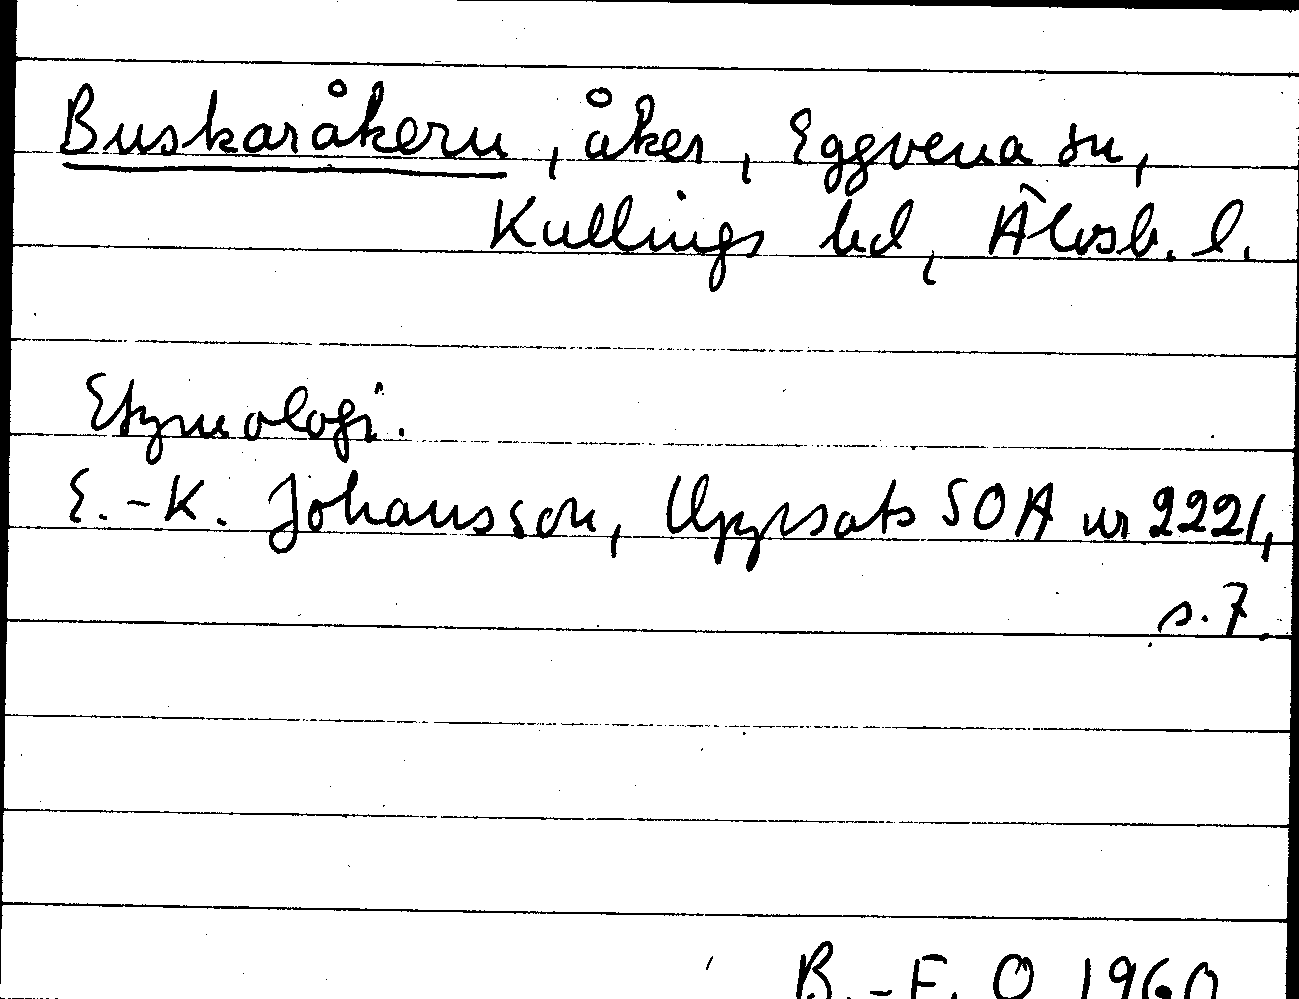 Buskaråkern, åker, Eggvena sn,
Kullings hd, Älvsb. l.
Etymologi.
E.-K. Johansson, Uppsats SOA nr 2221,
s. 7.
B.-E. O 1960